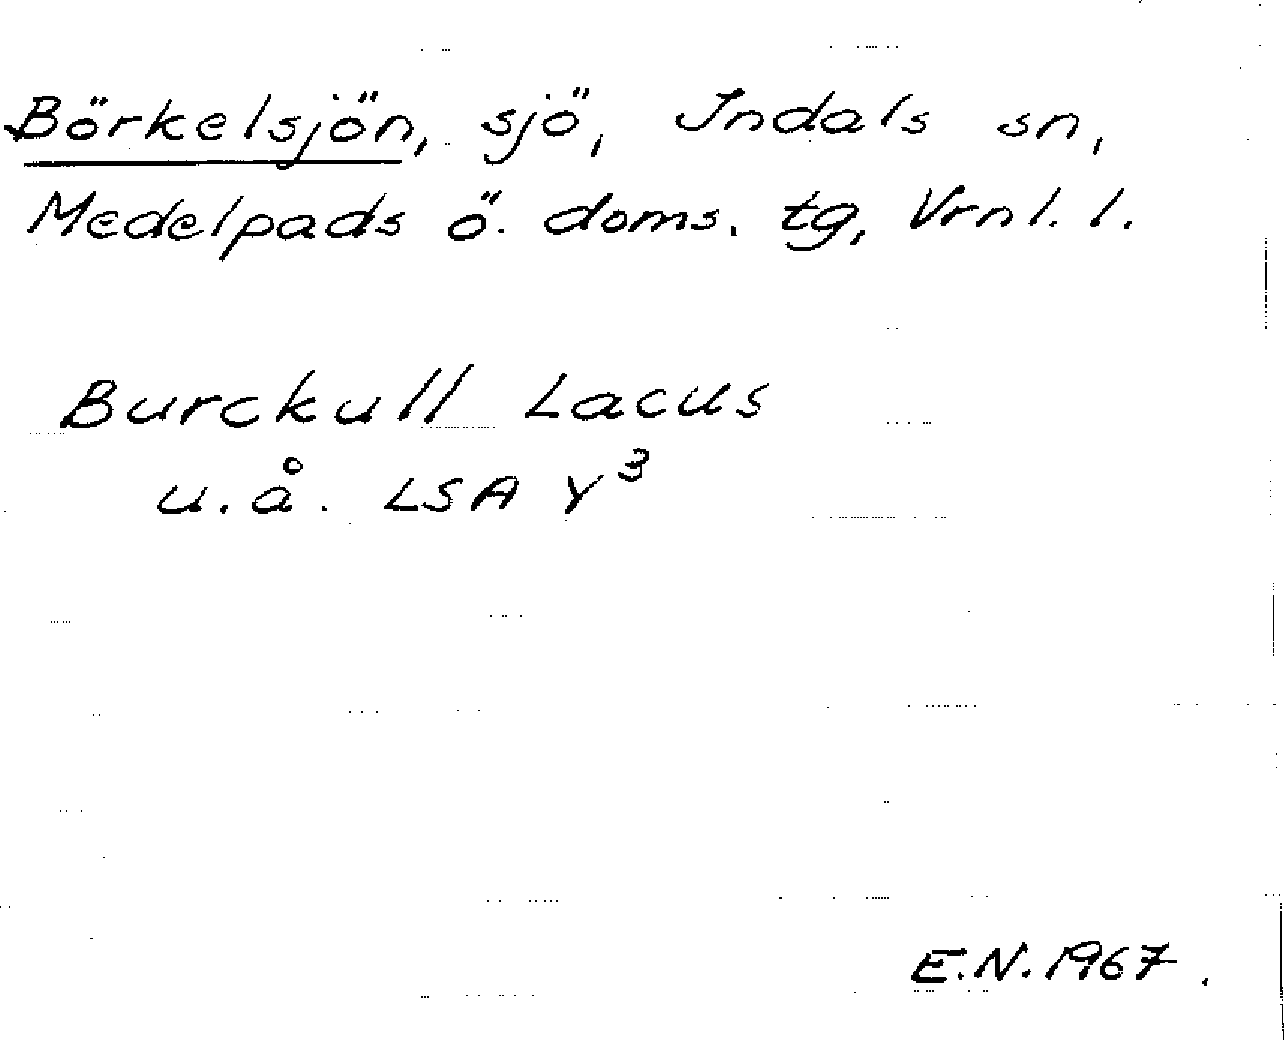 Börkelsjön, sjö, Indals sn,
Medelpads ö. doms. tg, Vrnl. l.
Burckull Lacus
u.å. LSA Y³
E.N. 1967.